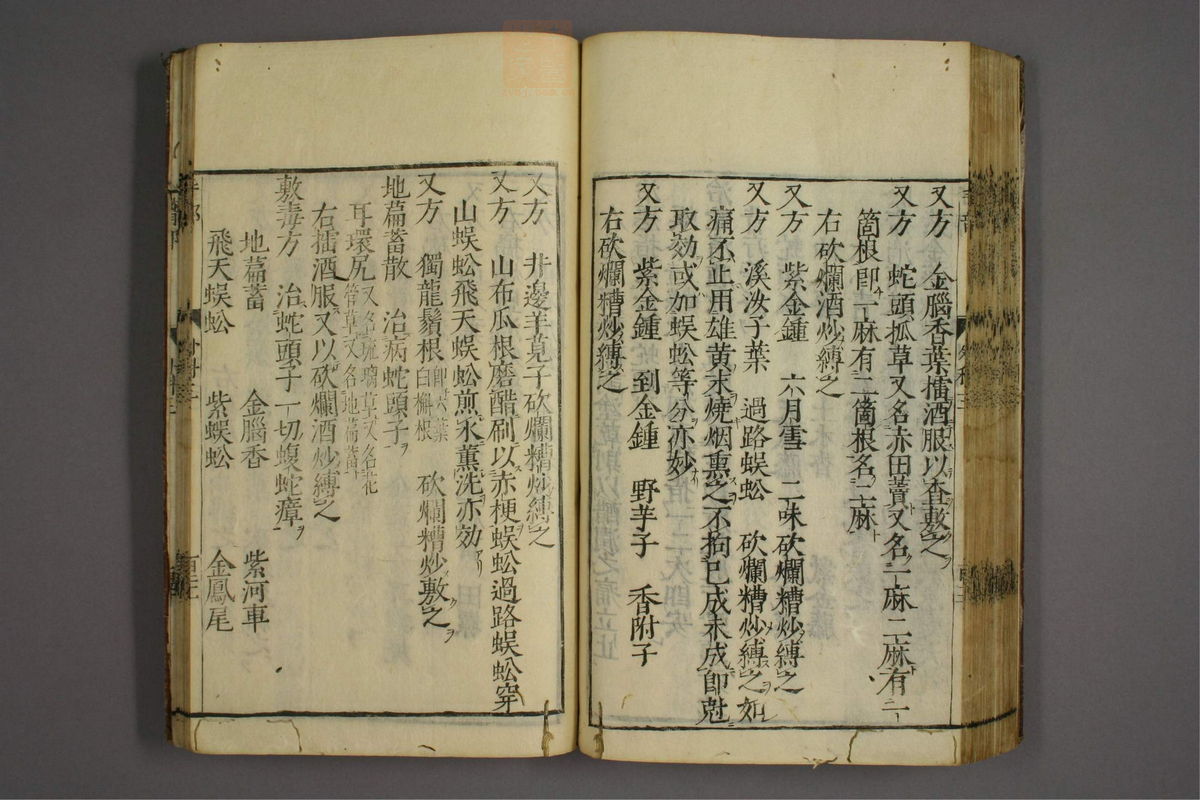 又方 金腦香葉擂酒服以查敷之
又方 蛇頭孤草又名赤田蕒又名一麻二麻有一
箇根即一麻有二箇根名二麻
右砍爛酒炒縛之
又方 紫金鍾 六月雪 二味砍爛糟炒縛之
又方 溪汝子葉 過路蜈蚣 砍爛糟炒縛之如
痛不止用雄黃末燒烟熏之不拘已成未成即尅
取効或加蜈蚣等分亦妙
又方 紫金鍾 到金鍾 野芋子 香附子
右砍爛糟炒縛之
又方 井邊羊莧子砍爛糟炒縛之
又方 山布瓜根磨醋刷以赤梗蜈蚣過路蜈蚣穿
山蜈蚣飛天蜈蚣煎水薰洗亦効
又方 獨龍鬚根 即六葉白槲根 砍爛糟炒敷之
地萹蓄散 治病蛇頭子
耳環尻 又名琉璃草又名花管草又名地萹蓄
右擂酒服又以砍爛酒炒縛之
敷毒方 治蛇頭子一切蝮蛇瘴
地萹蓄 金腦香 紫河車
飛天蜈蚣 紫蜈蚣 金鳳尾